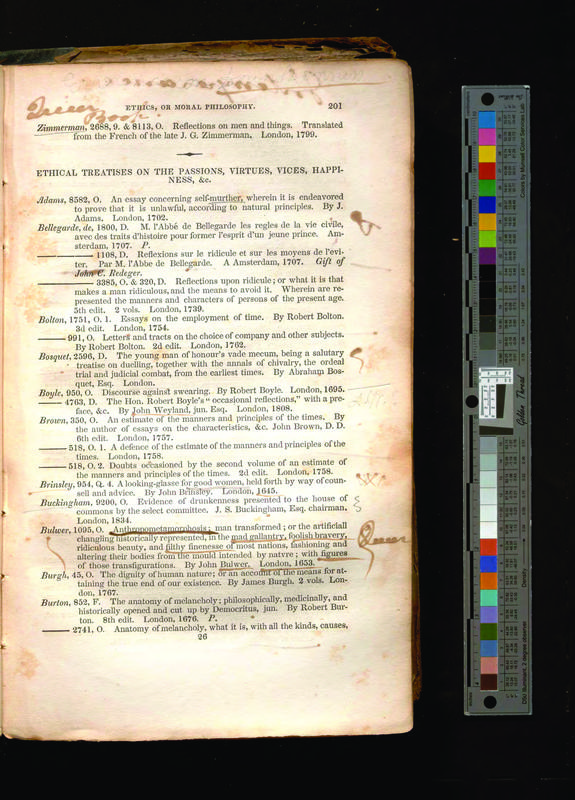 Queer
Book.
ETHICS, OR MORAL PHILOSOPHY. 201
Zimmerman, 2688, 9. & 8113, O. Reflections on men and things. Translated
from the French of the late J. G. Zimmerman, London, 1799.
ETHICAL TREATISES ON THE PASSIONS, VIRTUES, VICES, HAPPI-
NESS, &c.
Adams, 8582, O. An essay concerning self-murther, wherein it is endeavored
to prove that it is unlawful, according to natural principles. By J.
Adams. London, 1702.
Bellegarde, de, 1800, D. M. l'Abbé de Bellegarde les regles de la vie civile,
avec des traits d'histoire pour former l'esprit d'un jeune prince. Am-
sterdam, 1707. P.
——— 1108, D. Reflexions sur le ridicule et sur les moyens de l'evi-
ter. Par M. l'Abbe de Bellegarde. A Amsterdam, 1707. Gift of
John C. Redeger.
——— 3385, O. & 320, D. Reflections upon ridicule; or what it is that
makes a man ridiculous, and the means to avoid it. Wherein are re-
presented the manners and characters of persons of the present age.
5th edit. 2 vols. London, 1739.
Bolton, 1751, O. 1. Essays on the employment of time. By Robert Bolton.
3d edit. London, 1754.
——— 991, O. Letters and tracts on the choice of company and other subjects.
By Robert Bolton. 2d edit. London, 1762.
Bosquet, 2596, D. The young man of honour's vade mecum, being a salutary
treatise on duelling, together with the annals of chivalry, the ordeal
trial and judicial combat, from the earliest times. By Abraham Bos-
quet, Esq. London.
Boyle, 950, O. Discourse against swearing. By Robert Boyle. London, 1695.
——— 4763, D. The Hon. Robert Boyle's "occasional reflections," with a pre-
face, &c. By John Weyland, jun. Esq. London, 1808.
Brown, 350, O. An estimate of the manners and principles of the times. By
the author of essays on the characteristics, &c. John Brown, D. D.
6th edit. London, 1757.
——— 518, O. 1. A defence of the estimate of the manners and principles of the
times. London, 1758.
——— 518, O. 2. Doubts occasioned by the second volume of an estimate of
the manners and principles of the times. 2d edit. London, 1758.
Brinsley, 954, Q. 4. A looking-glasse for good women, held forth by way of coun-
sell and advice. By John Brinsley. London, 1645.
Buckingham, 9200, O. Evidence of drunkenness presented to the house of
commons by the select committee. J. S. Buckingham, Esq. chairman,
London, 1834.
Bulwer, 1095, O. Anthropometamorphosis; man transformed; or the artificiall
changling historically represented, in the mad gallantry, foolish bravery,
ridiculous beauty, and filthy finenesse of most nations, fashioning and
altering their bodies from the mould intended by natvre; with figures
of those transfigurations. By John Bulwer. London, 1653.
Queer
Burgh, 45, O. The dignity of human nature; or an account of the means for at-
taining the true end of our existence. By James Burgh. 2 vols. Lon-
don, 1767.
Burton, 852, F. The anatomy of melancholy; philosophically, medicinally, and
historically opened and cut up by Democritus, jun. By Robert Bur-
ton. 8th edit. London, 1676. P.
——— 2741, O. Anatomy of melancholy, what it is, with all the kinds, causes,
26